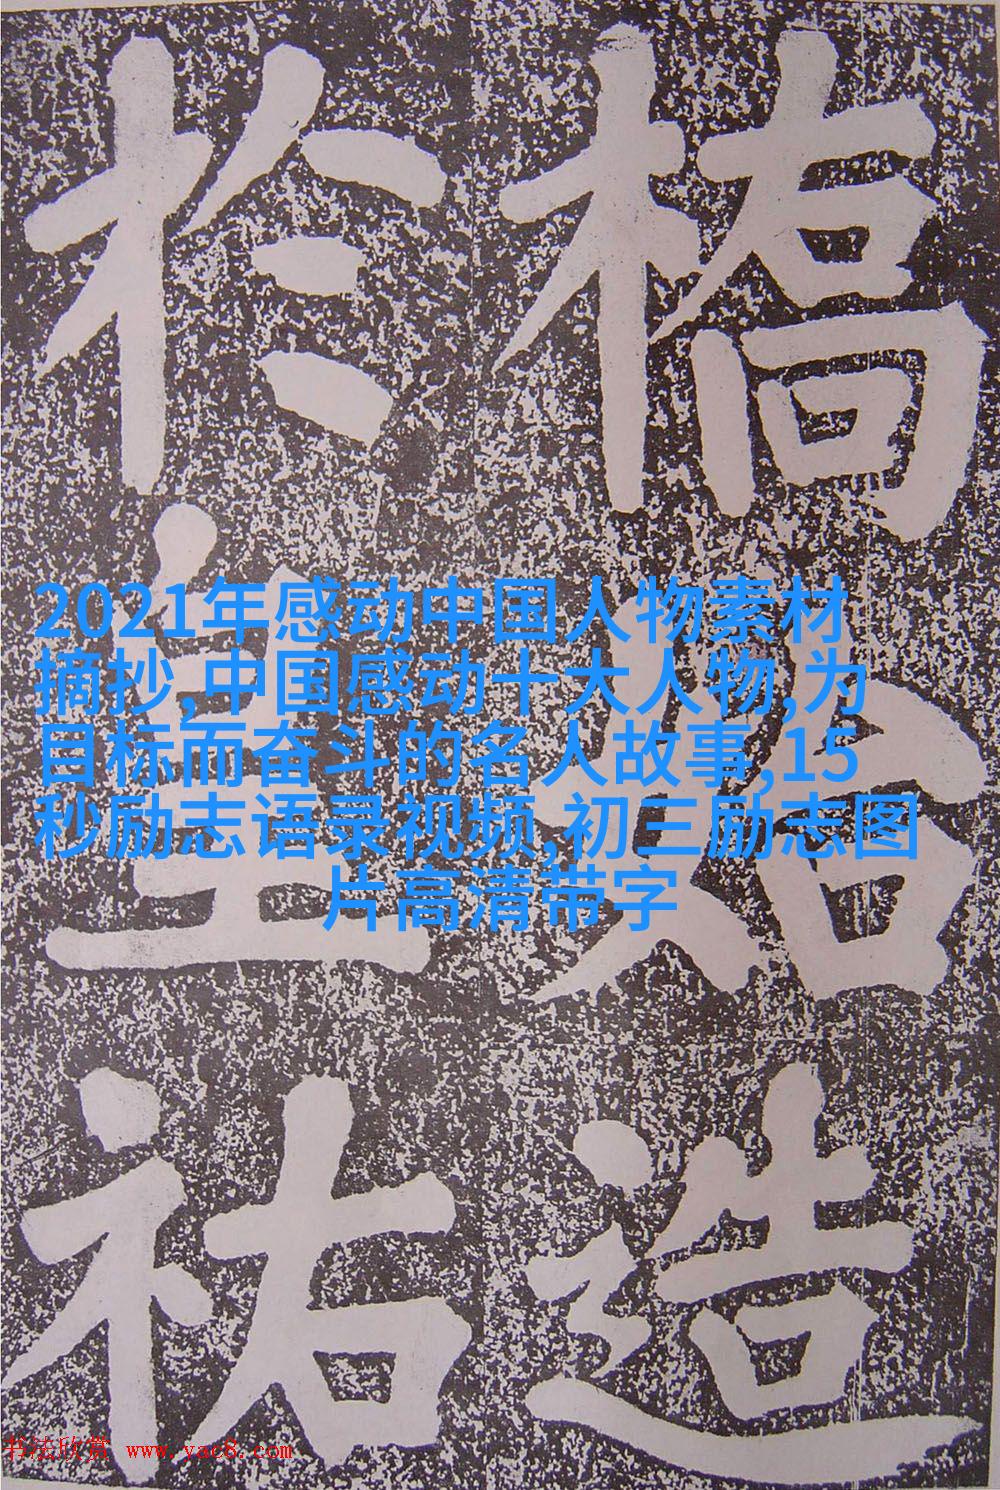 橋始造
於皇祐
2021年感动中国人物素材
摘抄,中国感动十大人物,为
目标而奋斗的名人故事,15
秒励志语录视频,初三励志图
片高清带字
书法欣赏 www.yac8.com